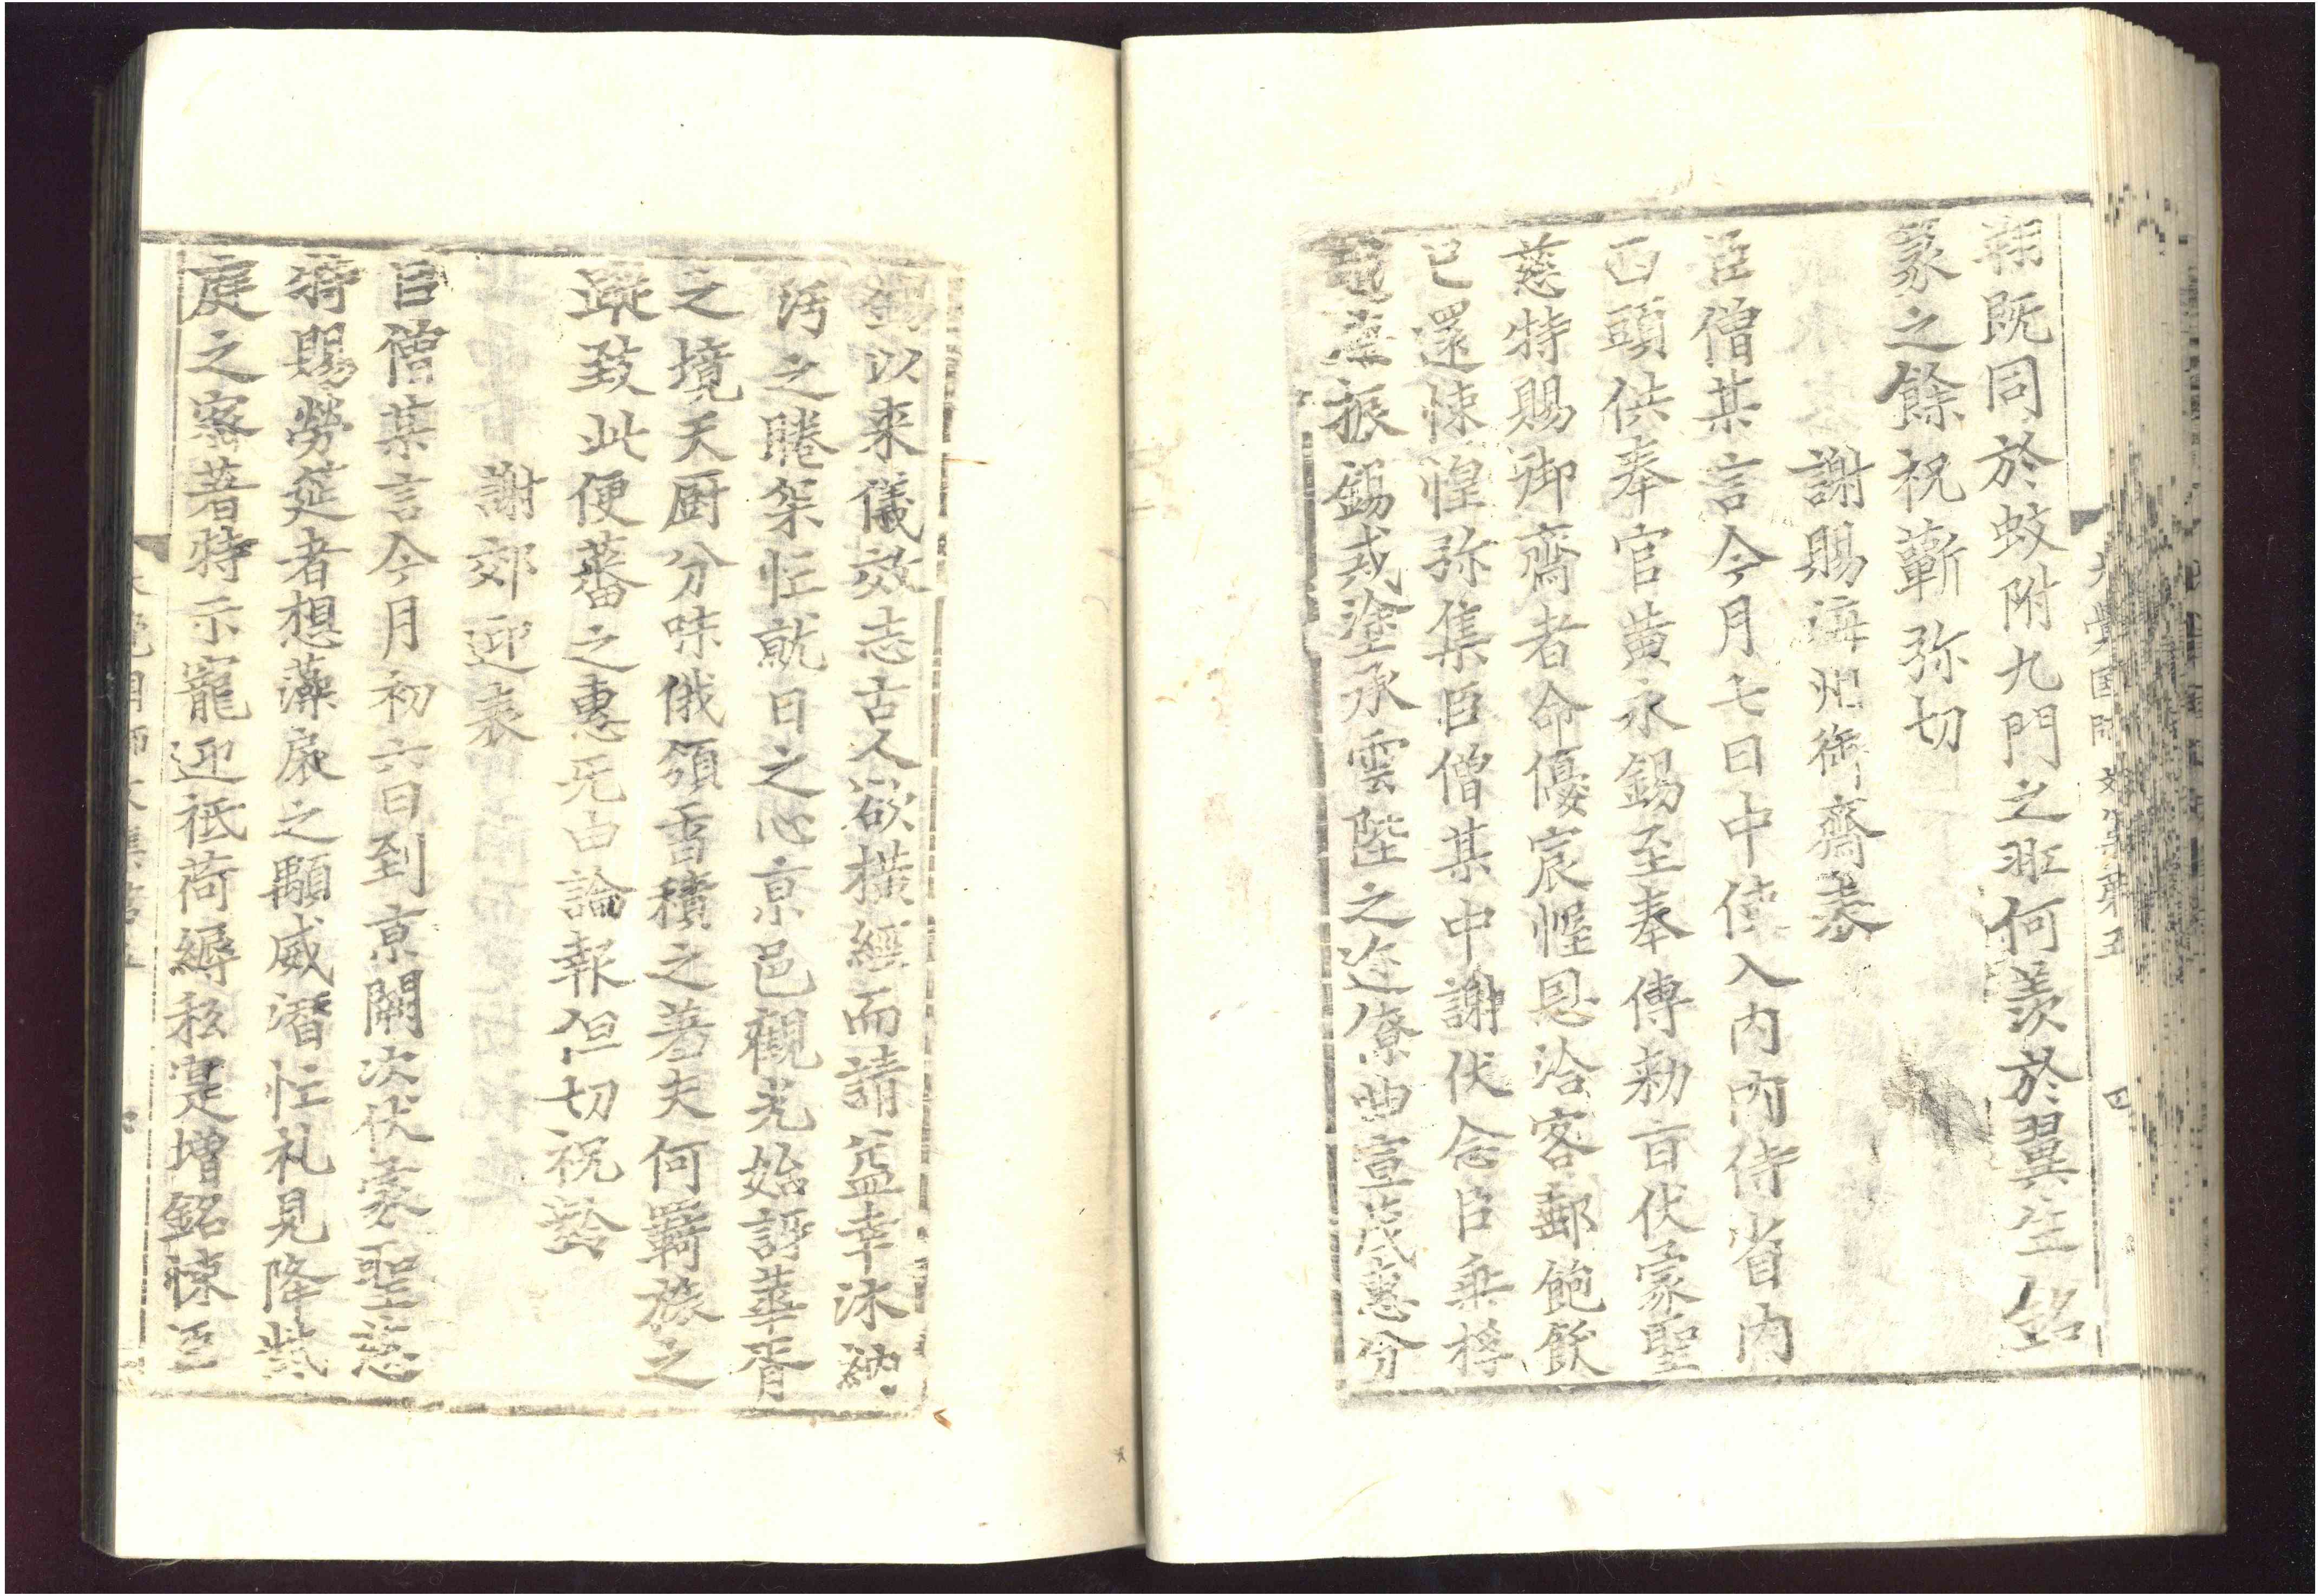 朝既同於蚊附九門之班何羨於翼生銘
篆之餘祝蘄弥切
謝賜海州御齋表
臣僧某言今月七日中使入内内侍省内
西頭供奉官黄永錫至奉傳勑旨伏蒙聖
慈特賜御齋者命優宸幄恩洽客郵飽飫
已還悚惶弥集臣僧某中謝伏念臣乗桴
振錫戎塗承雲陛之近僚曲宣茂惠分
大覺國師文集第五
四
錫以来儀效志古人欲橫經而請益幸沐納
汚之睠桀恇就日之心京邑觀光始訝華胥
之境天厨分味俄頒香積之著夫何羇旅之
蹤致此便蕃之惠旡由論報但切祝齡
謝郊迎表
臣僧某言今月初六日到京闕次伏蒙聖慈
特賜勞莚者想藻扆之顒威潛恇札見降紫
庭之寀著特示寵迎祇荷縟私寔增銘悚臣
大覺國師文集第五